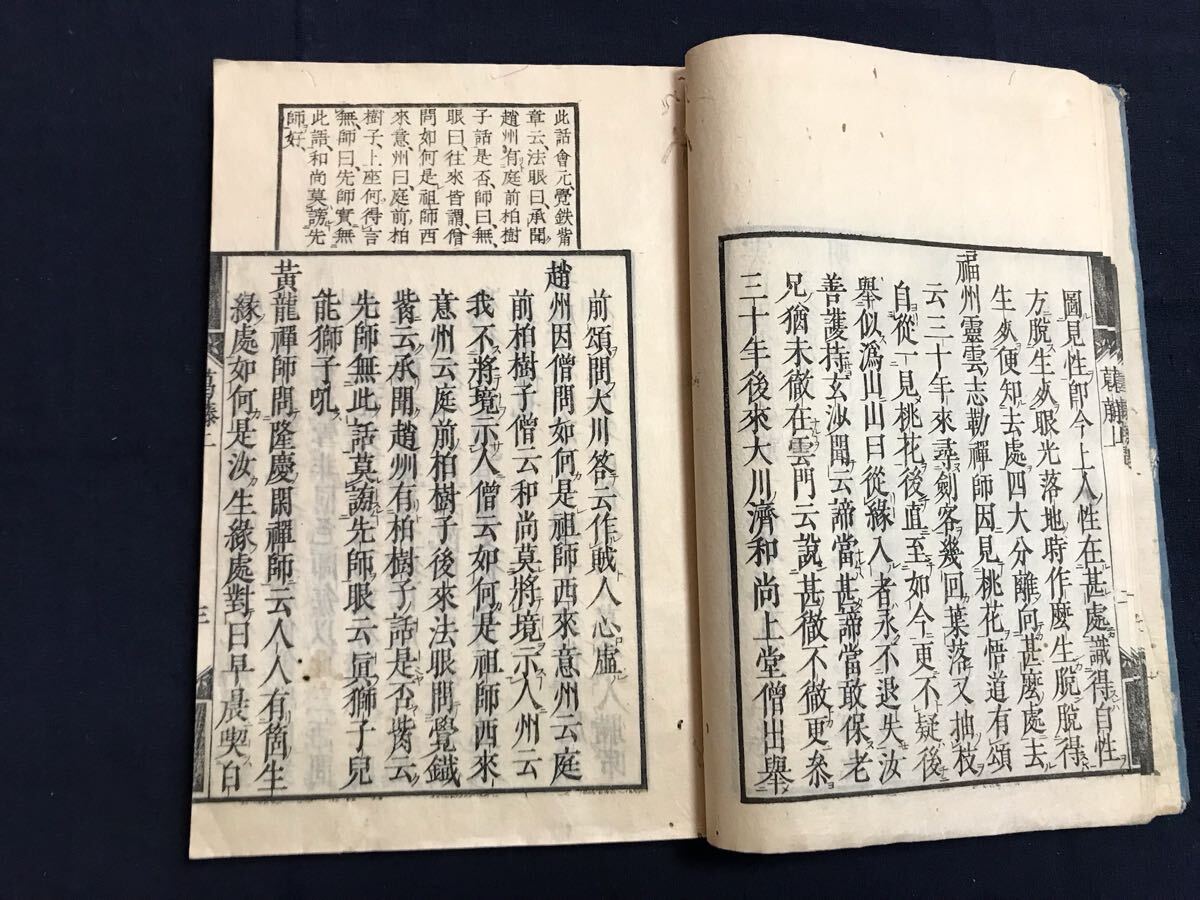 圖見性卽今上人性在甚處識得自性
方脫生死眼光落地時作麼生脫脫得
生死便知去處四大分離向甚麼處去
福州靈雲志勤禪師因見桃花悟道有頌
云三十年來尋劍客幾回葉落又抽枝
自從一見桃花後直至如今更不疑後
擧似潙山山曰從緣入者永不退失汝
善護持玄沙聞云諦當甚諦當敢保老
兄猶未徹在雲門云說甚徹不徹更參
三十年後來大川濟和尚上堂僧出擧
葛藤上
此話會元、覺鉄觜
章云、法眼曰、承聞
趙州有庭前柏樹
子話是否、師曰、無、
眼曰、往來皆謂、僧
問如何是祖師西
來意、州曰、庭前柏
樹子、上座何得言
無、師曰、先師實無
此語、和尚莫謗先
師好、
前頌問大川答云作賊人心虛
趙州因僧問如何是祖師西來意州云庭
前柏樹子僧云和尚莫將境示人州云
我不將境示人僧云如何是祖師西來
意州云庭前柏樹子後來法眼問覺鐵
觜云承聞趙州有柏樹子話是否觜云
先師無此話莫謗先師眼云眞獅子兒
能獅子吼
黃龍禪師問隆慶閑禪師云人人有箇生
緣處如何是汝生緣處對曰早晨喫白
葛藤上
三